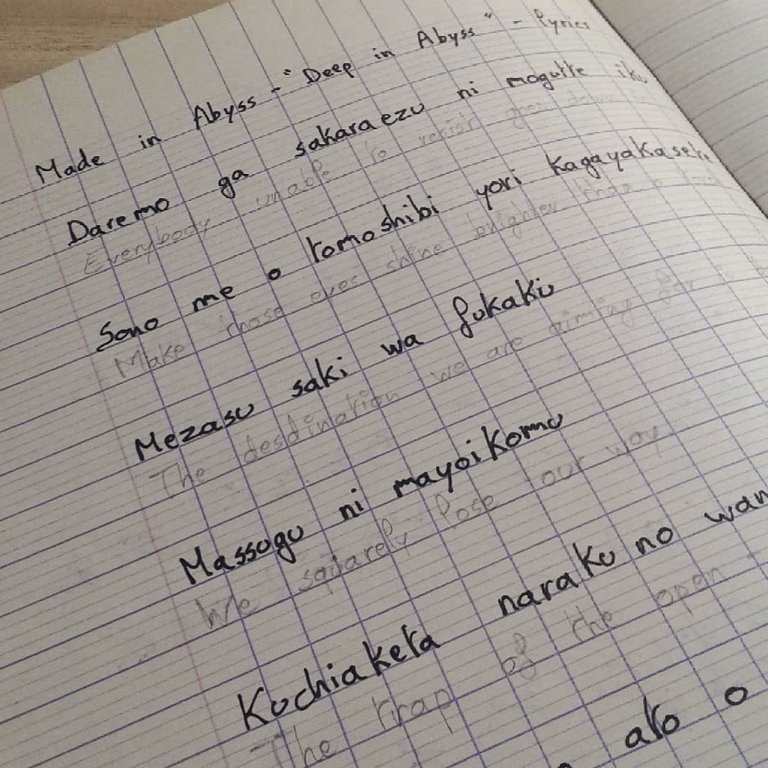 Made in Abyss - "Deep in Abyss" - lyrics
Daremo ga sakaraezu ni mogutte iku
Everybody unable to resist goes down
Sono me o tomoshibi yori kagayakasete
Make those eyes shine brighter than
Mezasu saki wa fukaku
The desdination we are aiming for is
Massugu ni mayoikomu
We squarely lose our way
Kuchiaketa naraku no wan
The trap of the open
ato o